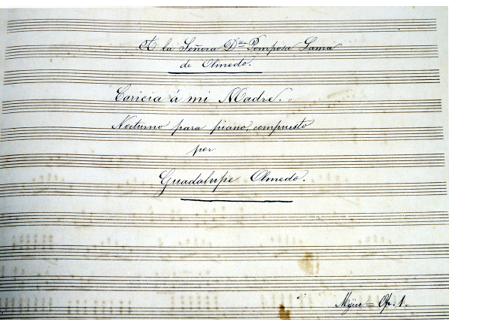 A la Señora Dña Pomposa Lama
de Olmedo.
Caricia á mi Madre.
Nocturno para piano, compuesto
por
Guadalupe Olmedo.
Op. 1.